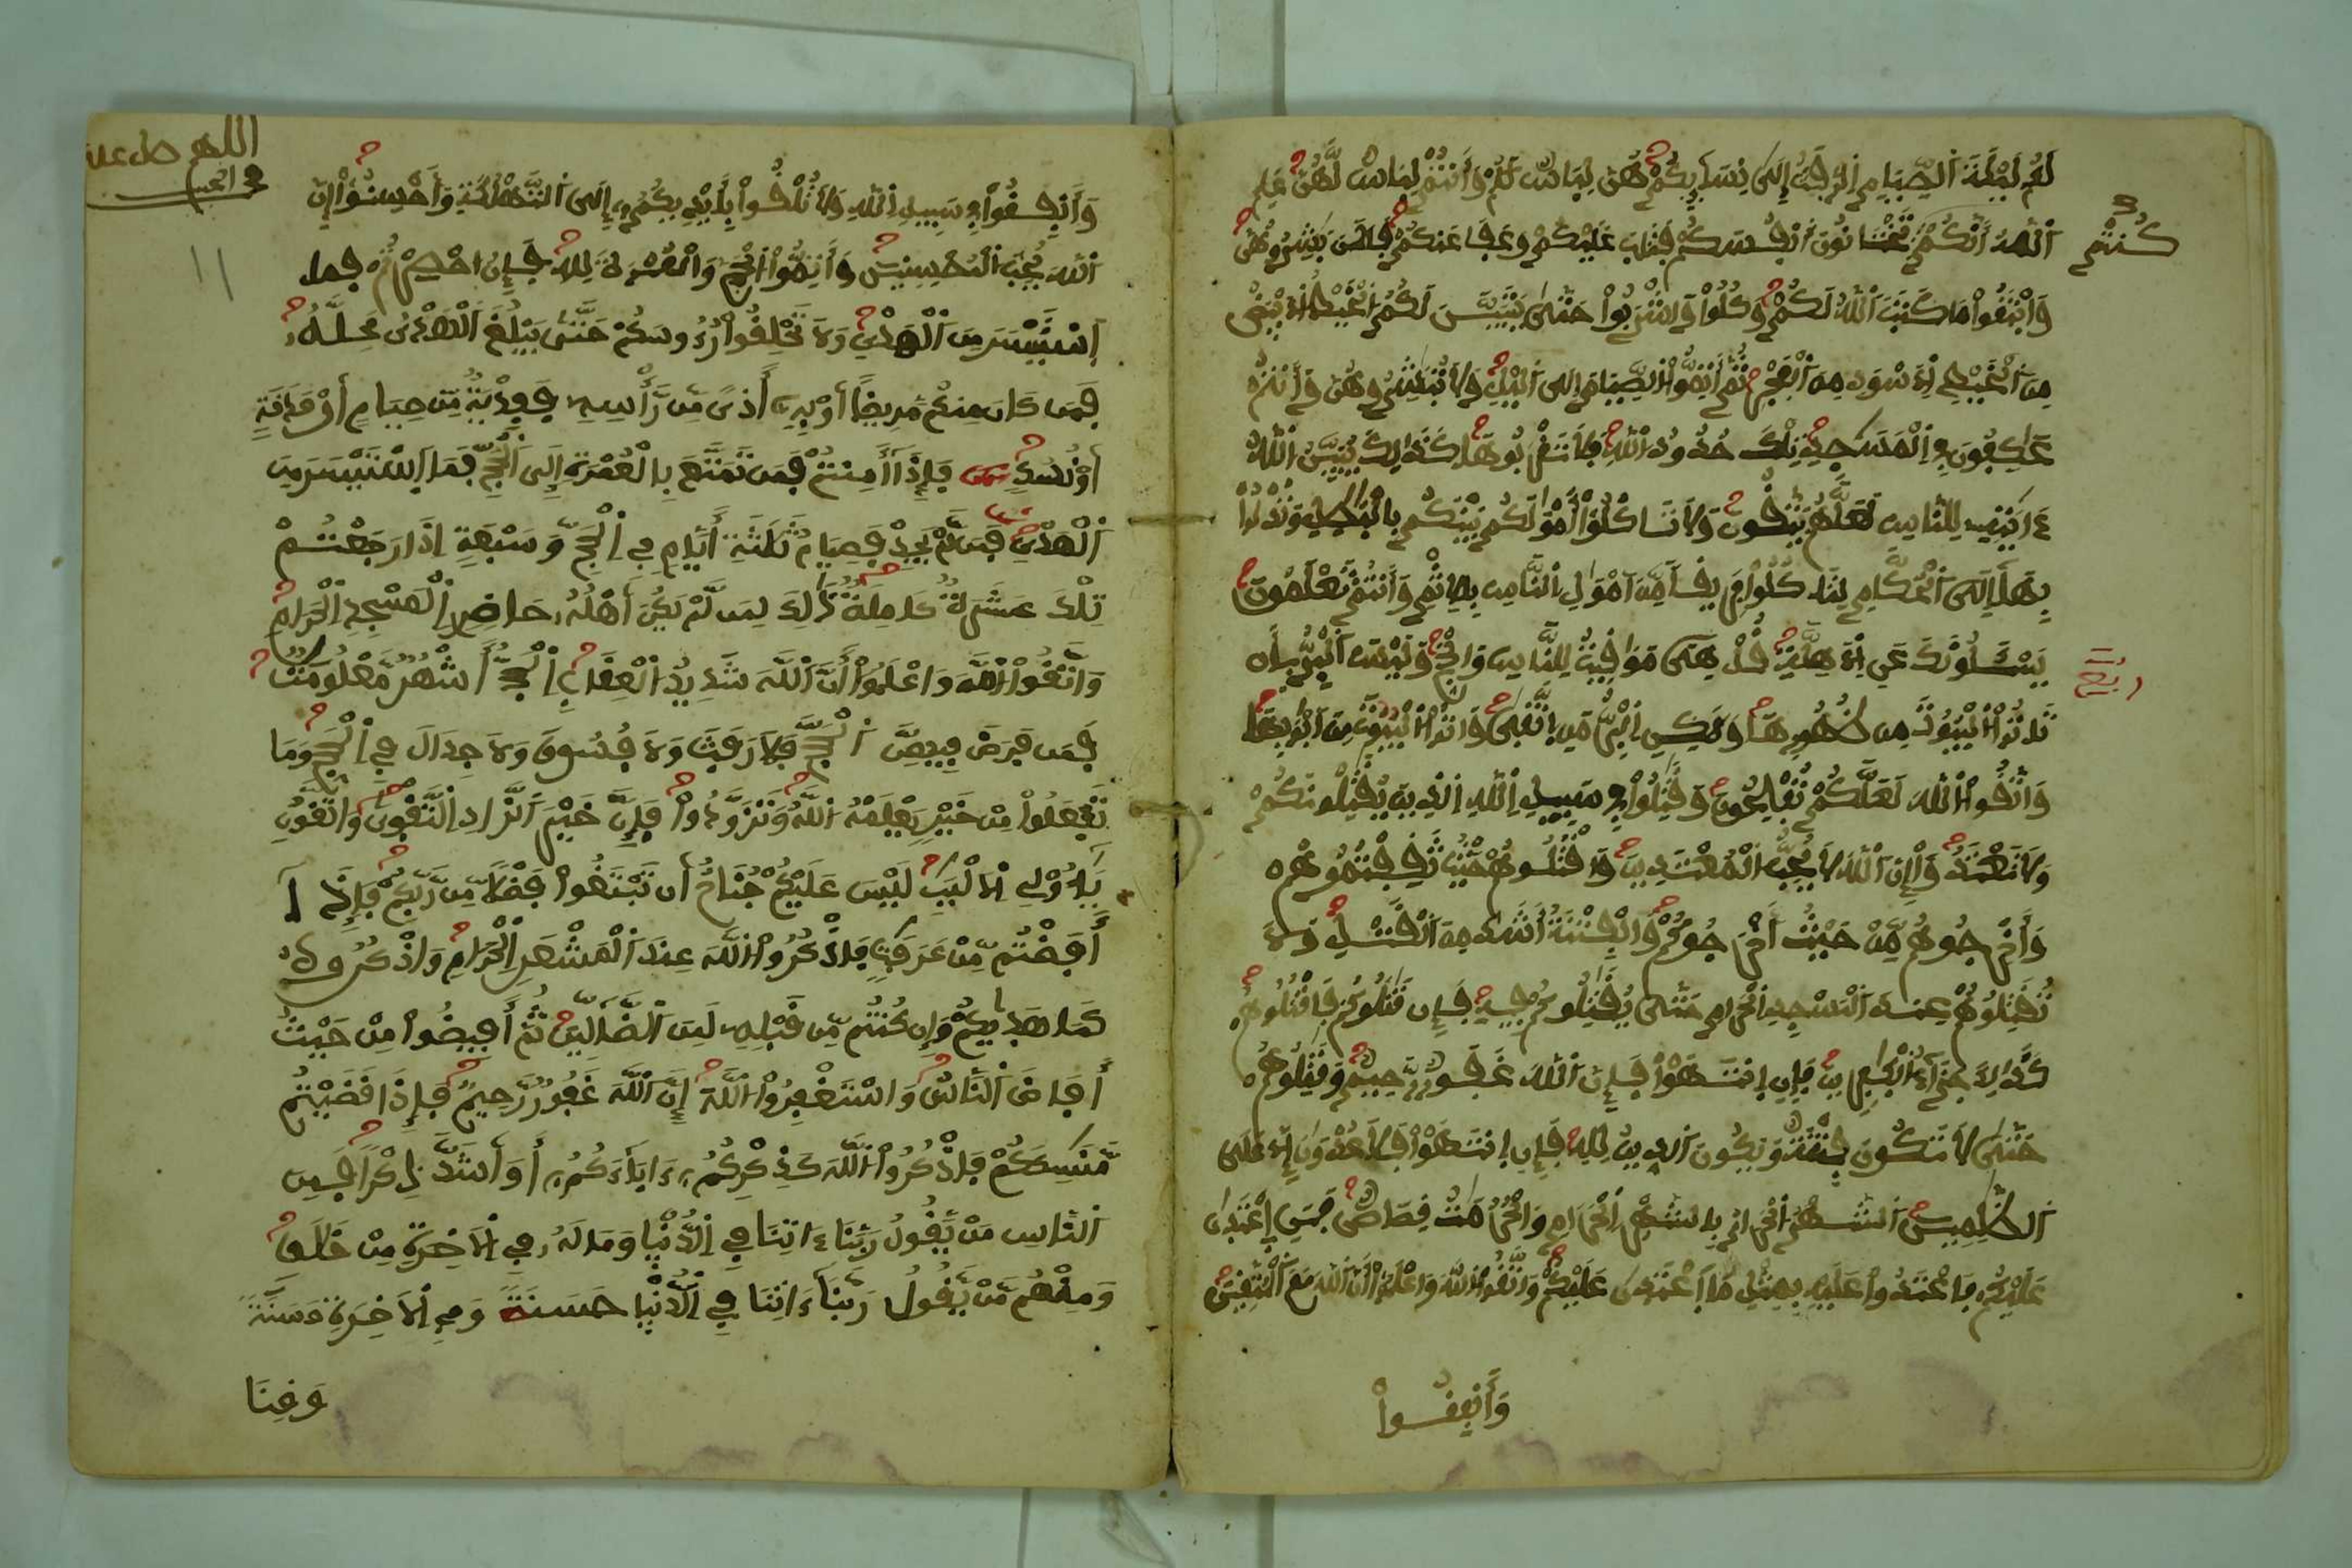 لَكُمْ لَيْلَةَ ٱلصِّيَامِ ٱلرَّفَثُ إِلَىٰ نِسَآئِكُمْ هُنَّ لِبَاسٌ لَّكُمْ وَأَنتُمْ لِبَاسٌ لَّهُنَّ عَلِمَ
ٱللَّهُ أَنَّكُمْ كُنتُمْ تَخْتَانُونَ أَنفُسَكُمْ فَتَابَ عَلَيْكُمْ وَعَفَا عَنكُمْ فَٱلَٰنَ بَٰشِرُوهُنَّ
وَٱبْتَغُوا۟ مَا كَتَبَ ٱللَّهُ لَكُمْ وَكُلُوا۟ وَٱشْرَبُوا۟ حَتَّىٰ يَتَبَيَّنَ لَكُمُ ٱلْخَيْطُ ٱلَابْيَضُ
مِنَ ٱلْخَيْطِ ٱلَاسْوَدِ مِنَ ٱلْفَجْرِ ثُمَّ أَتِمُّوا۟ ٱلصِّيَامَ إِلَى ٱلَّيْلِ وَلَا تُبَٰشِرُوهُنَّ وَأَنتُمْ
عَٰكِفُونَ فِي ٱلْمَسَٰجِدِ تِلْكَ حُدُودُ ٱللَّهِ فَلَا تَقْرَبُوهَا كَذَٰلِكَ يُبَيِّنُ ٱللَّهُ
ءَايَٰتِهِۦ لِلنَّاسِ لَعَلَّهُمْ يَتَّقُونَ وَلَا تَاكُلُوٓا۟ أَمْوَٰلَكُم بَيْنَكُم بِٱلْبَٰطِلِ وَتُدْلُوا۟
بِهَآ إِلَى ٱلْحُكَّامِ لِتَاكُلُوا۟ فَرِيقًا مِّنَ ٱمْوَٰلِ ٱلنَّاسِ بِٱلِاثْمِ وَأَنتُمْ تَعْلَمُونَ
يَسْـَٔلُونَكَ عَنِ ٱلَاهِلَّةِ قُلْ هِىَ مَوَٰقِيتُ لِلنَّاسِ وَٱلْحَجِّ وَلَيْسَ ٱلْبِرُّ بِأَن
تَاتُوا۟ ٱلْبُيُوتَ مِن ظُهُورِهَا وَلَٰكِنِ ٱلْبِرُّ مَنِ ٱتَّقَىٰ وَاتُوا۟ ٱلْبُيُوتَ مِنَ ٱبْوَٰبِهَا
وَٱتَّقُوا۟ ٱللَّهَ لَعَلَّكُمْ تُفْلِحُونَ وَقَٰتِلُوا۟ فِي سَبِيلِ ٱللَّهِ ٱلذِينَ يُقَٰتِلُونَكُمْ
وَلَا تَعْتَدُوٓا۟ إِنَّ ٱللَّهَ لَا يُحِبُّ ٱلْمُعْتَدِينَ وَٱقْتُلُوهُمْ حَيْثُ ثَقِفْتُمُوهُمْ
وَأَخْرِجُوهُم مِّنْ حَيْثُ أَخْرَجُوكُمْ وَٱلْفِتْنَةُ أَشَدُّ مِنَ ٱلْقَتْلِ وَلَا
تُقَٰتِلُوهُمْ عِندَ ٱلْمَسْجِدِ ٱلْحَرَامِ حَتَّىٰ يُقَٰتِلُوكُمْ فِيهِ فَإِن قَٰتَلُوكُمْ فَٱقْتُلُوهُمْ
كَذَٰلِكَ جَزَآءُ ٱلْكَٰفِرِينَ فَإِنِ ٱنتَهَوْا۟ فَإِنَّ ٱللَّهَ غَفُورٌ رَّحِيمٌ وَقَٰتِلُوهُمْ
حَتَّىٰ لَا تَكُونَ فِتْنَةٌ وَيَكُونَ ٱلدِّينُ لِلَّهِ فَإِنِ ٱنتَهَوْا۟ فَلَا عُدْوَٰنَ إِلَّا عَلَى
ٱلظَّٰلِمِينَ ٱلشَّهْرُ ٱلْحَرَامُ بِٱلشَّهْرِ ٱلْحَرَامِ وَٱلْحُرُمَٰتُ قِصَاصٌ فَمَنِ ٱعْتَدَىٰ
عَلَيْكُمْ فَٱعْتَدُوا۟ عَلَيْهِ بِمِثْلِ مَا ٱعْتَدَىٰ عَلَيْكُمْ وَٱتَّقُوا۟ ٱللَّهَ وَٱعْلَمُوٓا۟ أَنَّ ٱللَّهَ مَعَ ٱلْمُتَّقِينَ
وَأَنفِقُوا۟
كُنتُمْ
ربع
اللهم صل على
وَأَنفِقُوا۟ فِي سَبِيلِ ٱللَّهِ وَلَا تُلْقُوا۟ بِأَيْدِيكُمُۥٓ إِلَى ٱلتَّهْلُكَةِ وَأَحْسِنُوٓا۟ إِنَّ
ٱللَّهَ يُحِبُّ ٱلْمُحْسِنِينَ وَأَتِمُّوا۟ ٱلْحَجَّ وَٱلْعُمْرَةَ لِلَّهِ فَإِنُ احْصِرْتُمْ فَمَا
ٱسْتَيْسَرَ مِنَ ٱلْهَدْيِ وَلَا تَحْلِقُوا۟ رُءُوسَكُمْ حَتَّىٰ يَبْلُغَ ٱلْهَدْيُ مَحِلَّهُۥ
فَمَن كَانَ مِنكُم مَّرِيضًا أَوْ بِهِۦٓ أَذًى مِّن رَّأْسِهِۦ فَفِدْيَةٌ مِّن صِيَامٍ أَوْ صَدَقَةٍ
أَوْ نُسُكٍ فَإِذَآ أَمِنتُمْ فَمَن تَمَتَّعَ بِٱلْعُمْرَةِ إِلَى ٱلْحَجِّ فَمَا ٱسْتَيْسَرَ مِنَ
ٱلْهَدْيِ فَمَن لَّمْ يَجِدْ فَصِيَامُ ثَلَٰثَةِ أَيَّامٍ فِي ٱلْحَجِّ وَسَبْعَةٍ إِذَا رَجَعْتُمْ
تِلْكَ عَشَرَةٌ كَامِلَةٌ ذَٰلِكَ لِمَن لَّمْ يَكُنَ اَهْلُهُۥ حَاضِرِي ٱلْمَسْجِدِ ٱلْحَرَامِ
وَٱتَّقُوا۟ ٱللَّهَ وَٱعْلَمُوٓا۟ أَنَّ ٱللَّهَ شَدِيدُ ٱلْعِقَابِ ٱلْحَجُّ أَشْهُرٌ مَّعْلُومَٰتٌ
فَمَن فَرَضَ فِيهِنَّ ٱلْحَجَّ فَلَا رَفَثَ وَلَا فُسُوقَ وَلَا جِدَالَ فِي ٱلْحَجِّ وَمَا
تَفْعَلُوا۟ مِنْ خَيْرٍ يَعْلَمْهُ ٱللَّهُ وَتَزَوَّدُوا۟ فَإِنَّ خَيْرَ ٱلزَّادِ ٱلتَّقْوَىٰ وَٱتَّقُونِ
يَٰٓأُو۟لِي ٱلَالْبَٰبِ لَيْسَ عَلَيْكُمْ جُنَاحٌ أَن تَبْتَغُوا۟ فَضْلًا مِّن رَّبِّكُمْ فَإِذَآ
أَفَضْتُم مِّنْ عَرَفَٰتٍ فَٱذْكُرُوا۟ ٱللَّهَ عِندَ ٱلْمَشْعَرِ ٱلْحَرَامِ وَٱذْكُرُوهُ
كَمَا هَدَىٰكُمْ وَإِن كُنتُم مِّن قَبْلِهِۦ لَمِنَ ٱلضَّآلِّينَ ثُمَّ أَفِيضُوا۟ مِنْ حَيْثُ
أَفَاضَ ٱلنَّاسُ وَٱسْتَغْفِرُوا۟ ٱللَّهَ إِنَّ ٱللَّهَ غَفُورٌ رَّحِيمٌ فَإِذَا قَضَيْتُم
مَّنَٰسِكَكُمْ فَٱذْكُرُوا۟ ٱللَّهَ كَذِكْرِكُمُۥٓ ءَابَآءَكُمُۥٓ أَوَ اَشَدَّ ذِكْرًا فَمِنَ
ٱلنَّاسِ مَنْ يَّقُولُ رَبَّنَآ ءَاتِنَا فِي ٱلدُّنْيَا وَمَا لَهُۥ فِي ٱلَاخِرَةِ مِنْ خَلَٰقٍ
وَمِنْهُم مَّنْ يَّقُولُ رَبَّنَآ ءَاتِنَا فِي ٱلدُّنْيَا حَسَنَةً وَفِي ٱلَاخِرَةِ حَسَنَةً
وَقِنَا